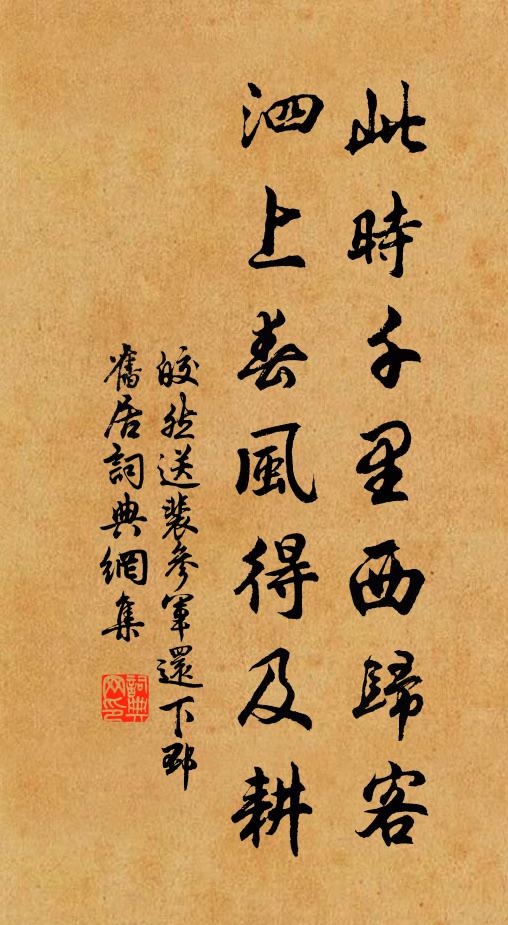 此時千里西歸客
泗上春風得及耕
皎然送裴參軍還下邳
舊居詞典網集
詞典
网印